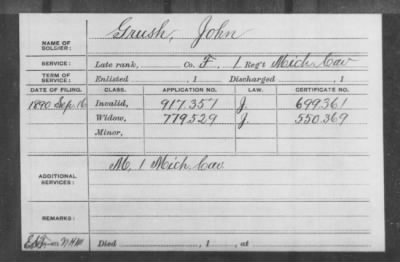 NAME OF SOLDIER: Grush, John
SERVICE: Late rank, Co. F, 1 Reg't Mich Cav
TERM OF SERVICE: Enlisted , 1 Discharged , 1
DATE OF FILING. CLASS. APPLICATION NO. LAW. CERTIFICATE NO.
1890 Sep 16 Invalid, 917.357 J. 699.361
Widow, 779.529 J. 550.369
Minor,
ADDITIONAL SERVICES: M, 1 Mich Cav
REMARKS:
Died , 1 , at